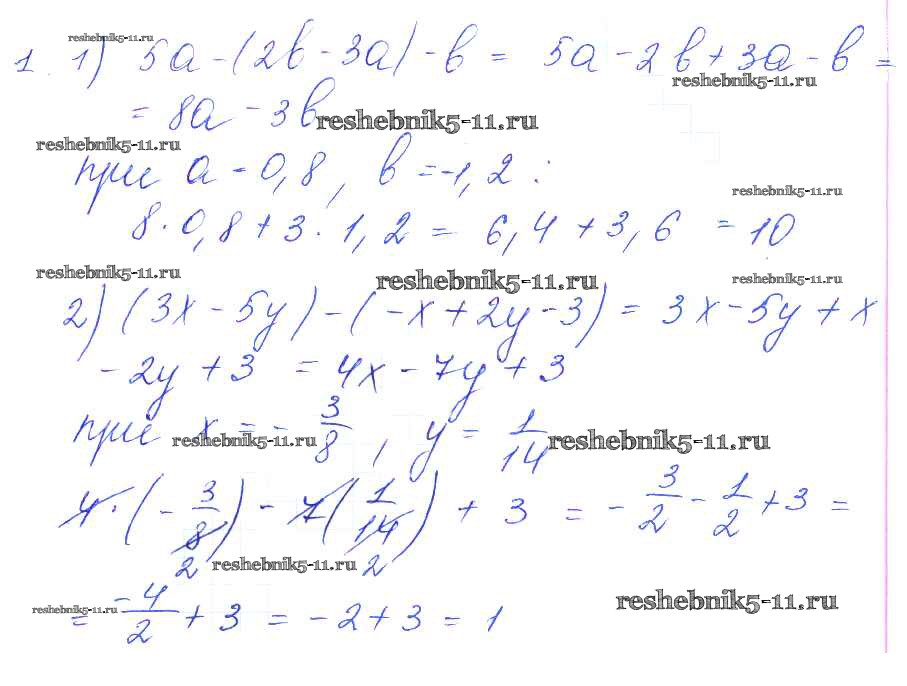 reshebnik5-11.ru
1. 1) 5a - (2b - 3a) - b = 5a - 2b + 3a - b =
reshebnik5-11.ru
= 8a - 3b
reshebnik5-11.ru
reshebnik5-11.ru
при a = 0,8, b = -1,2 :
reshebnik5-11.ru
8 · 0,8 + 3 · 1,2 = 6,4 + 3,6 = 10
reshebnik5-11.ru
reshebnik5-11.ru
reshebnik5-11.ru
2) (3x - 5y) - (-x + 2y - 3) = 3x - 5y + x
- 2y + 3 = 4x - 7y + 3
при x = - 3/8, y = 1/14
reshebnik5-11.ru
reshebnik5-11.ru
4 · (- 3/8) - 7 (1/14) + 3 = - 3/2 - 1/2 + 3 =
2 2
reshebnik5-11.ru
reshebnik5-11.ru
= -4/2 + 3 = -2 + 3 = 1
reshebnik5-11.ru